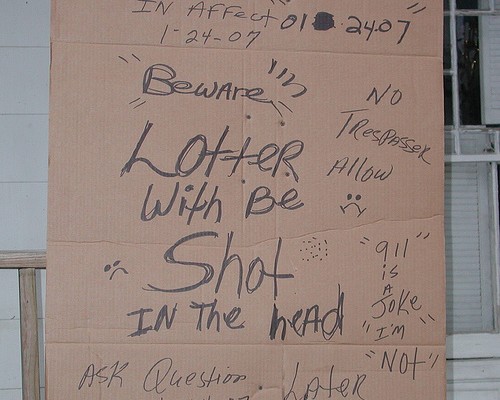 IN AFFect 01 24.07
1-24-07
"Beware"
NO
TResPAsseR
Allow
LOtteR
With Be
Shot
IN The head
"911"
is
A
JoKe
"I'm"
"Not"
ASK Question LAteR